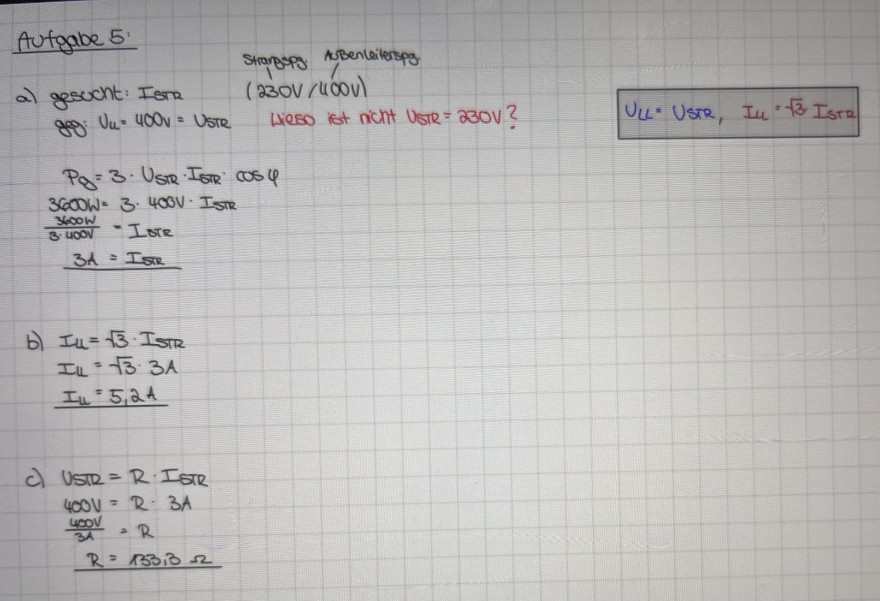 Aufgabe 5:
Strangspg. Außenleiterspg.
a) gesucht: ISTR (230V/400V)
geg: ULL = 400V = USTR Wieso ist nicht USTR = 230V?
ULL = USTR, ILL = √3 ISTR
Pg = 3 · USTR · ISTR · cos φ
3600W = 3 · 400V · ISTR
3600W / 3·400V = ISTR
3A = ISTR
b) ILL = √3 · ISTR
ILL = √3 · 3A
ILL = 5,2A
c) USTR = R · ISTR
400V = R · 3A
400V / 3A = R
R = 133,3 Ω